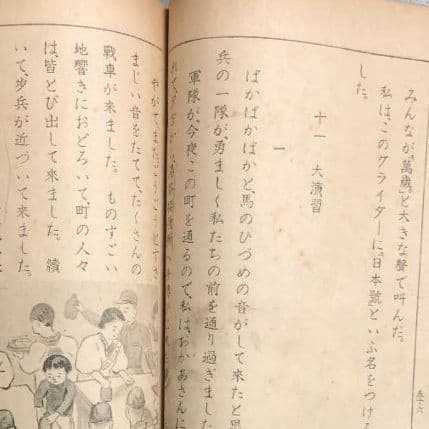 みんなが「萬歳」と大きな聲で叫んだ。
私は、このグライダーに、「日本號」といふ名をつける
した。
十一 大演習
一
ぱかぱかぱかと、馬のひづめの音がして來たと思
兵の一隊が勇ましく私たちの前を通り過ぎました
軍隊が、今夜この町を通るので、私は、おかあさんに
やがて、また、
まじい音をたてて、たくさんの
戰車が來ました。ものすごい
地響きにおどろいて、町の人々
は、皆とび出して來ました。續
いて、歩兵が近づいて來ました。